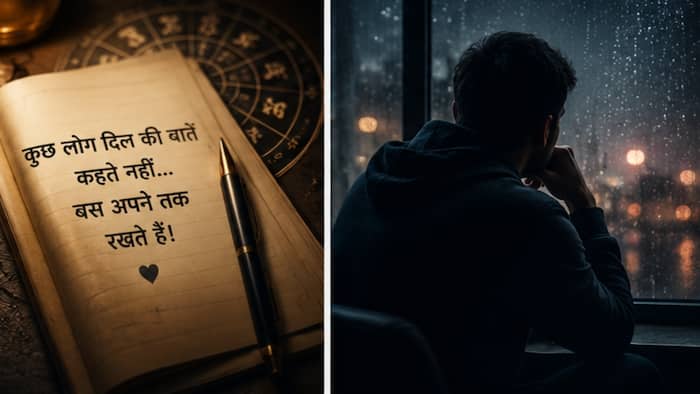 कुछ लोग दिल की बातें
कहते नहीं...
बस अपने तक
रखते हैं!